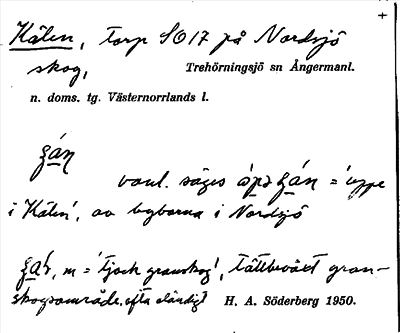 +
Kälen, torp SO17 på Nordsjö
skog,
Trehörningsjö sn Ångermanl.
n. doms. tg. Västernorrlands l.
vanl. säges = 'uppe
i Kälen', av byborna i Nordsjö
m = 'tjock granskog', tättbeväxt gran-
skogsområde, ofta eländigt H. A. Söderberg 1950.